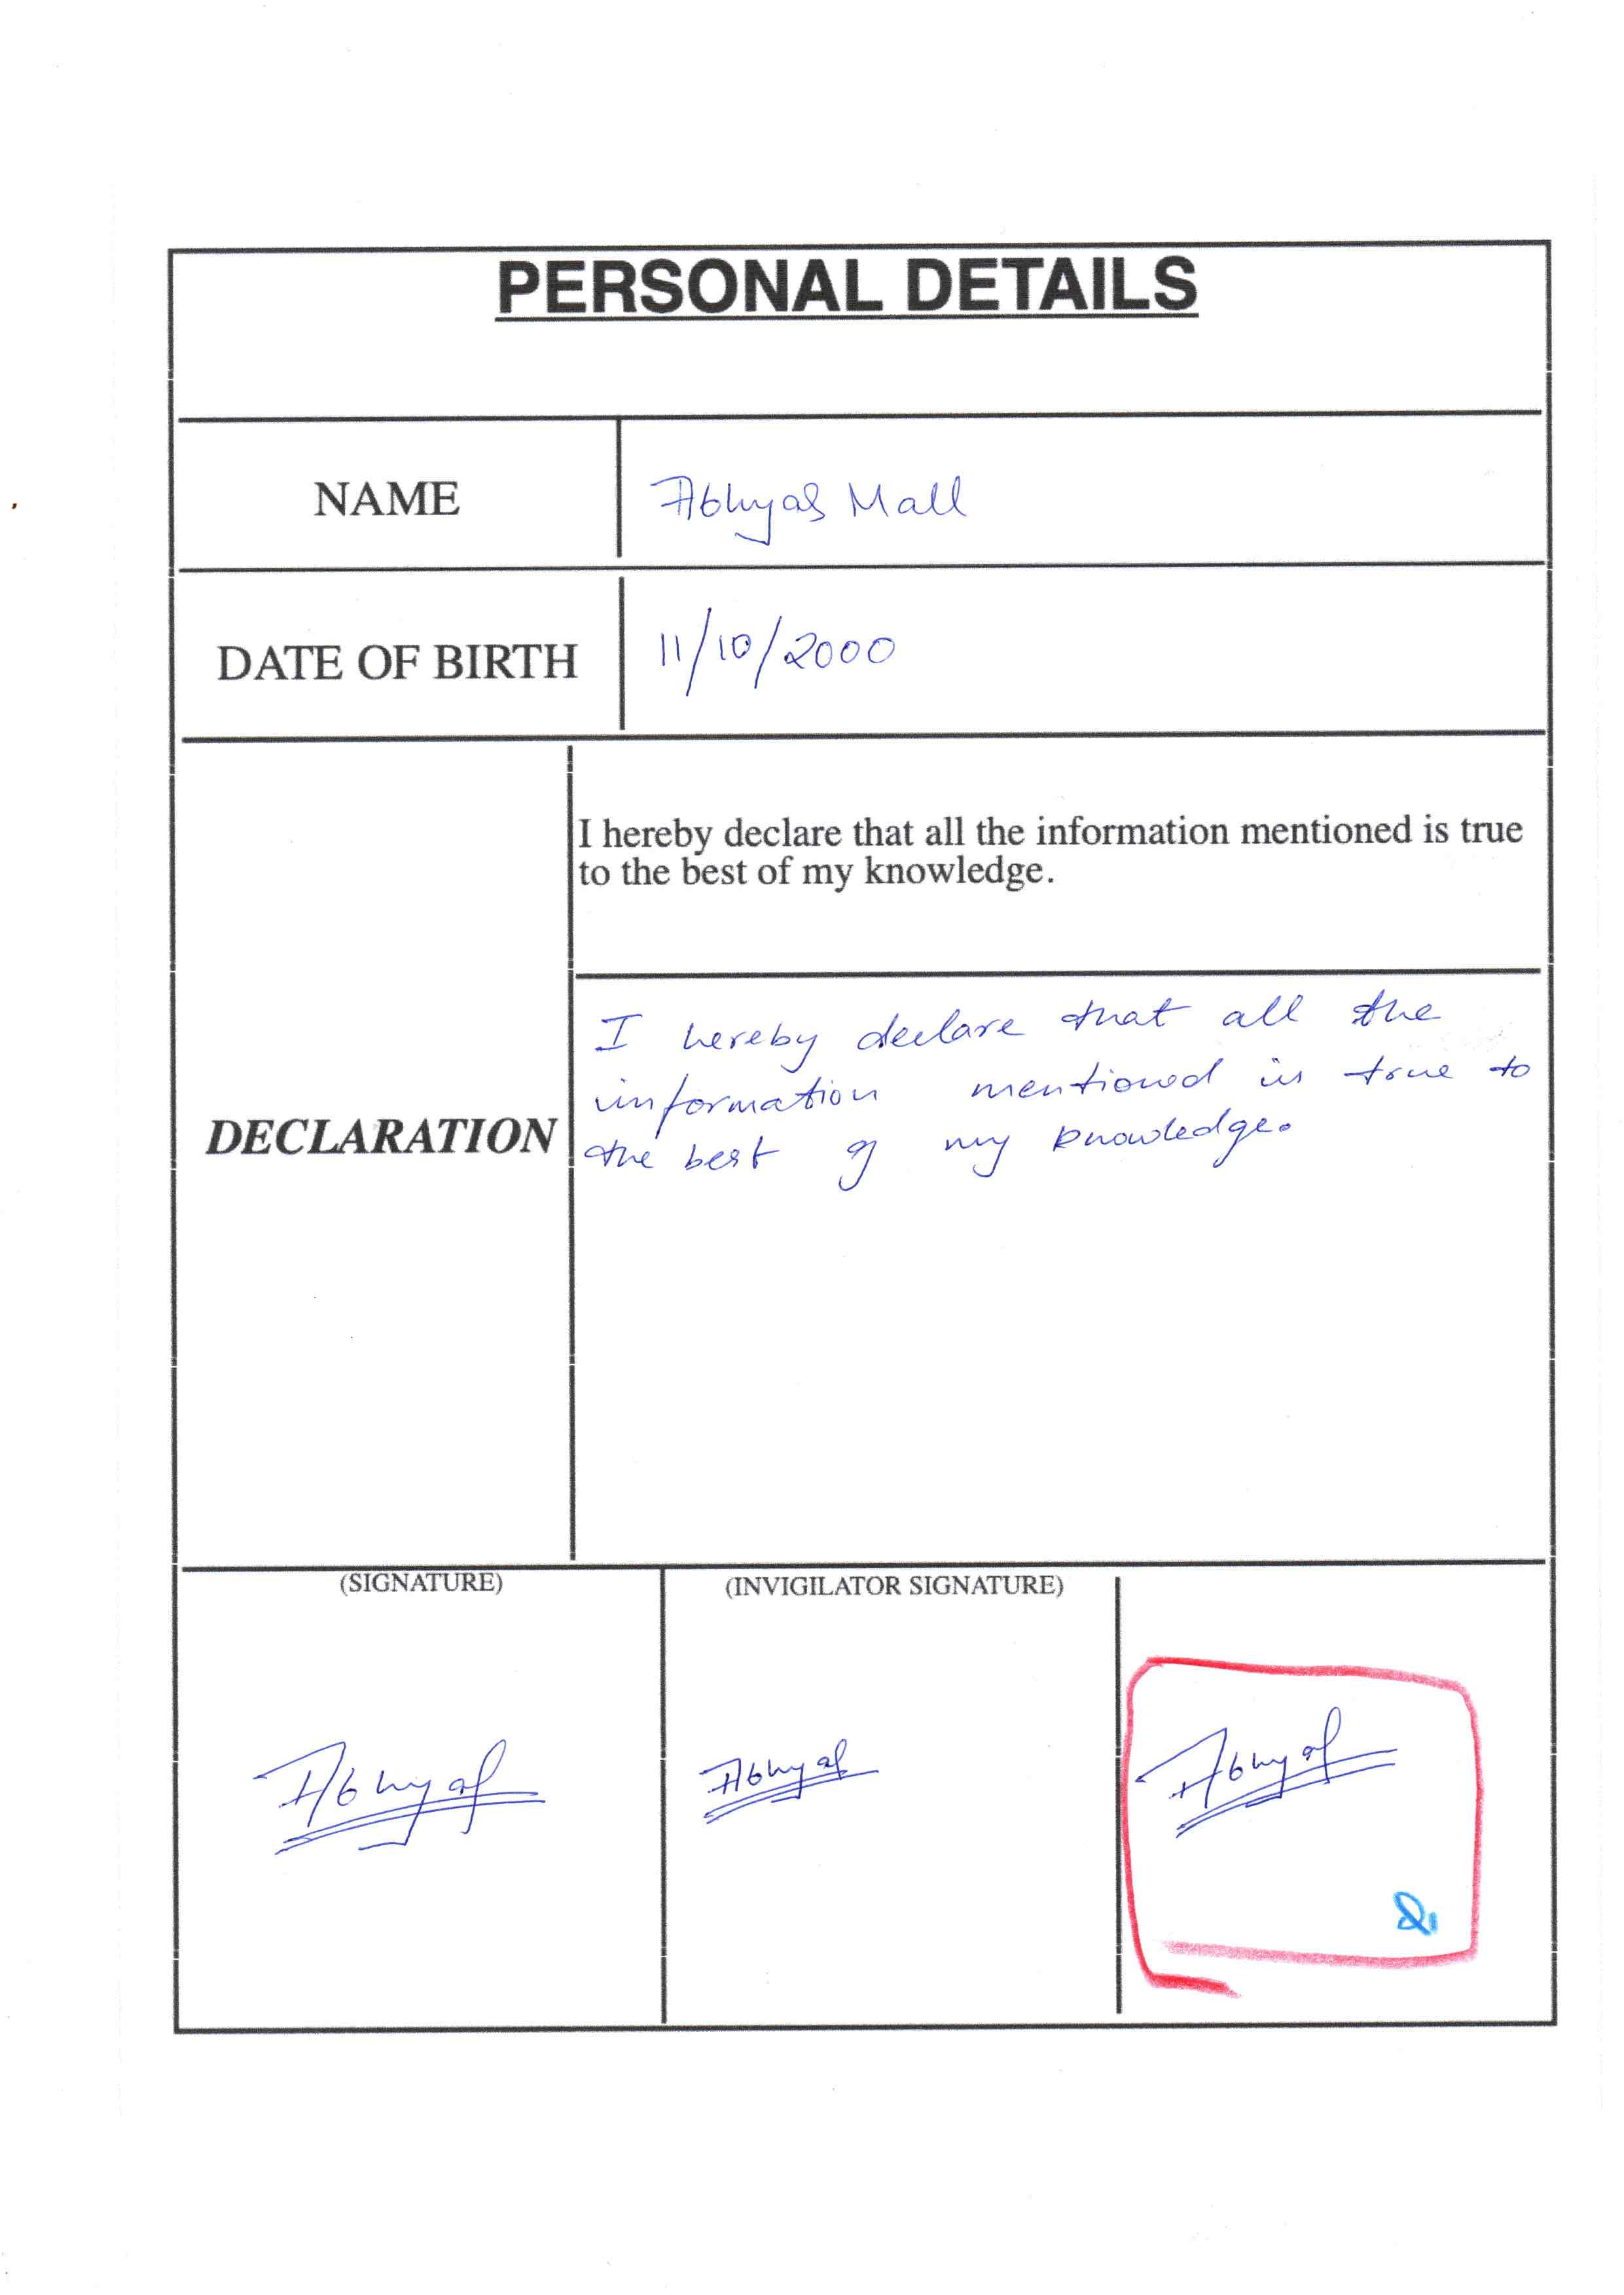 PERSONAL DETAILS
NAME
Abhyas Mall
DATE OF BIRTH
11/10/2000
I hereby declare that all the information mentioned is true
to the best of my knowledge.
DECLARATION
I hereby declare that all the
information mentioned is true to
the best of my knowledge.
(SIGNATURE)
(INVIGILATOR SIGNATURE)
Abhyas
Abhyas
Abhyas